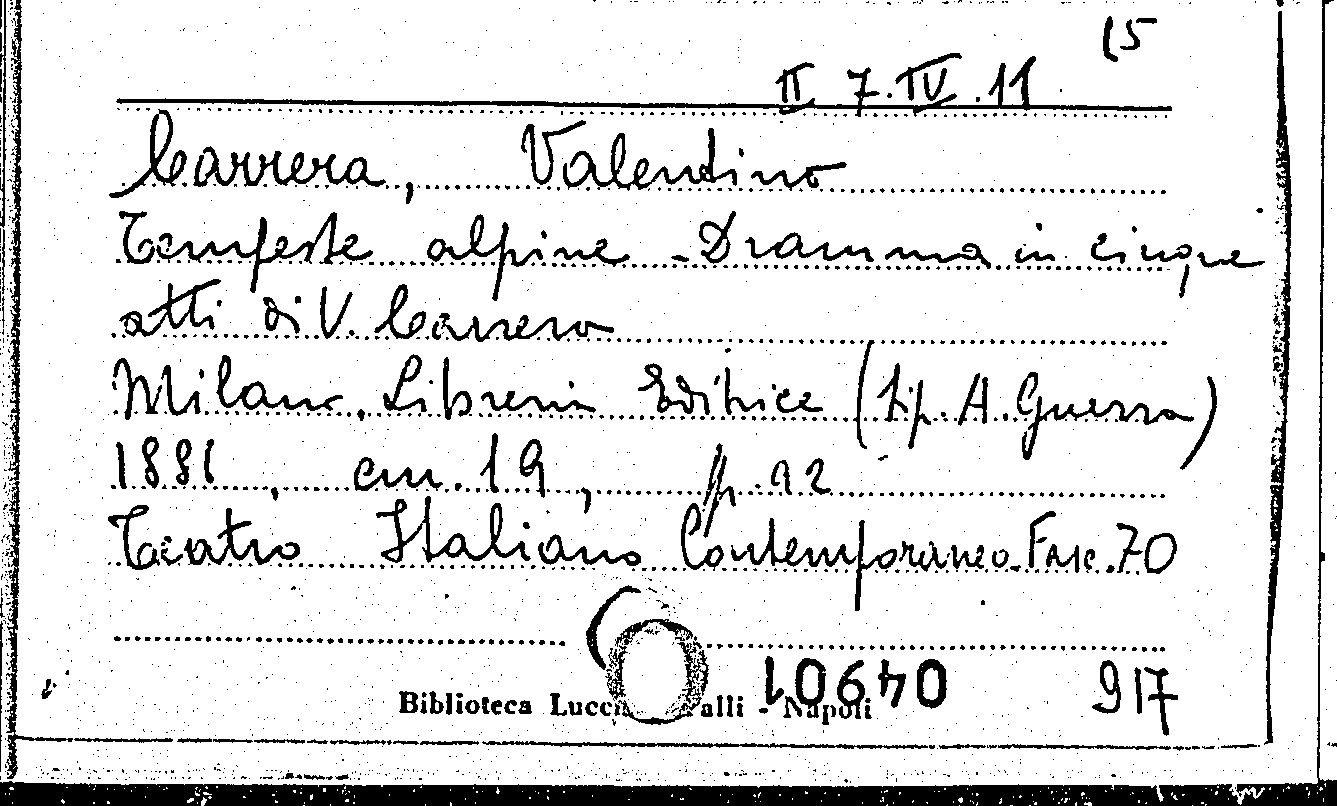 15
II 7.IV.11
Carrera, Valentino
Tempeste alpine - Dramma in cinque
atti di V. Carrera
Milano, Libreria Editrice (Tip. A. Guerra)
1881, cm. 19, p.
Teatro Italiano Contemporaneo. Fasc. 70
917
Biblioteca Lucc alli - Napoli